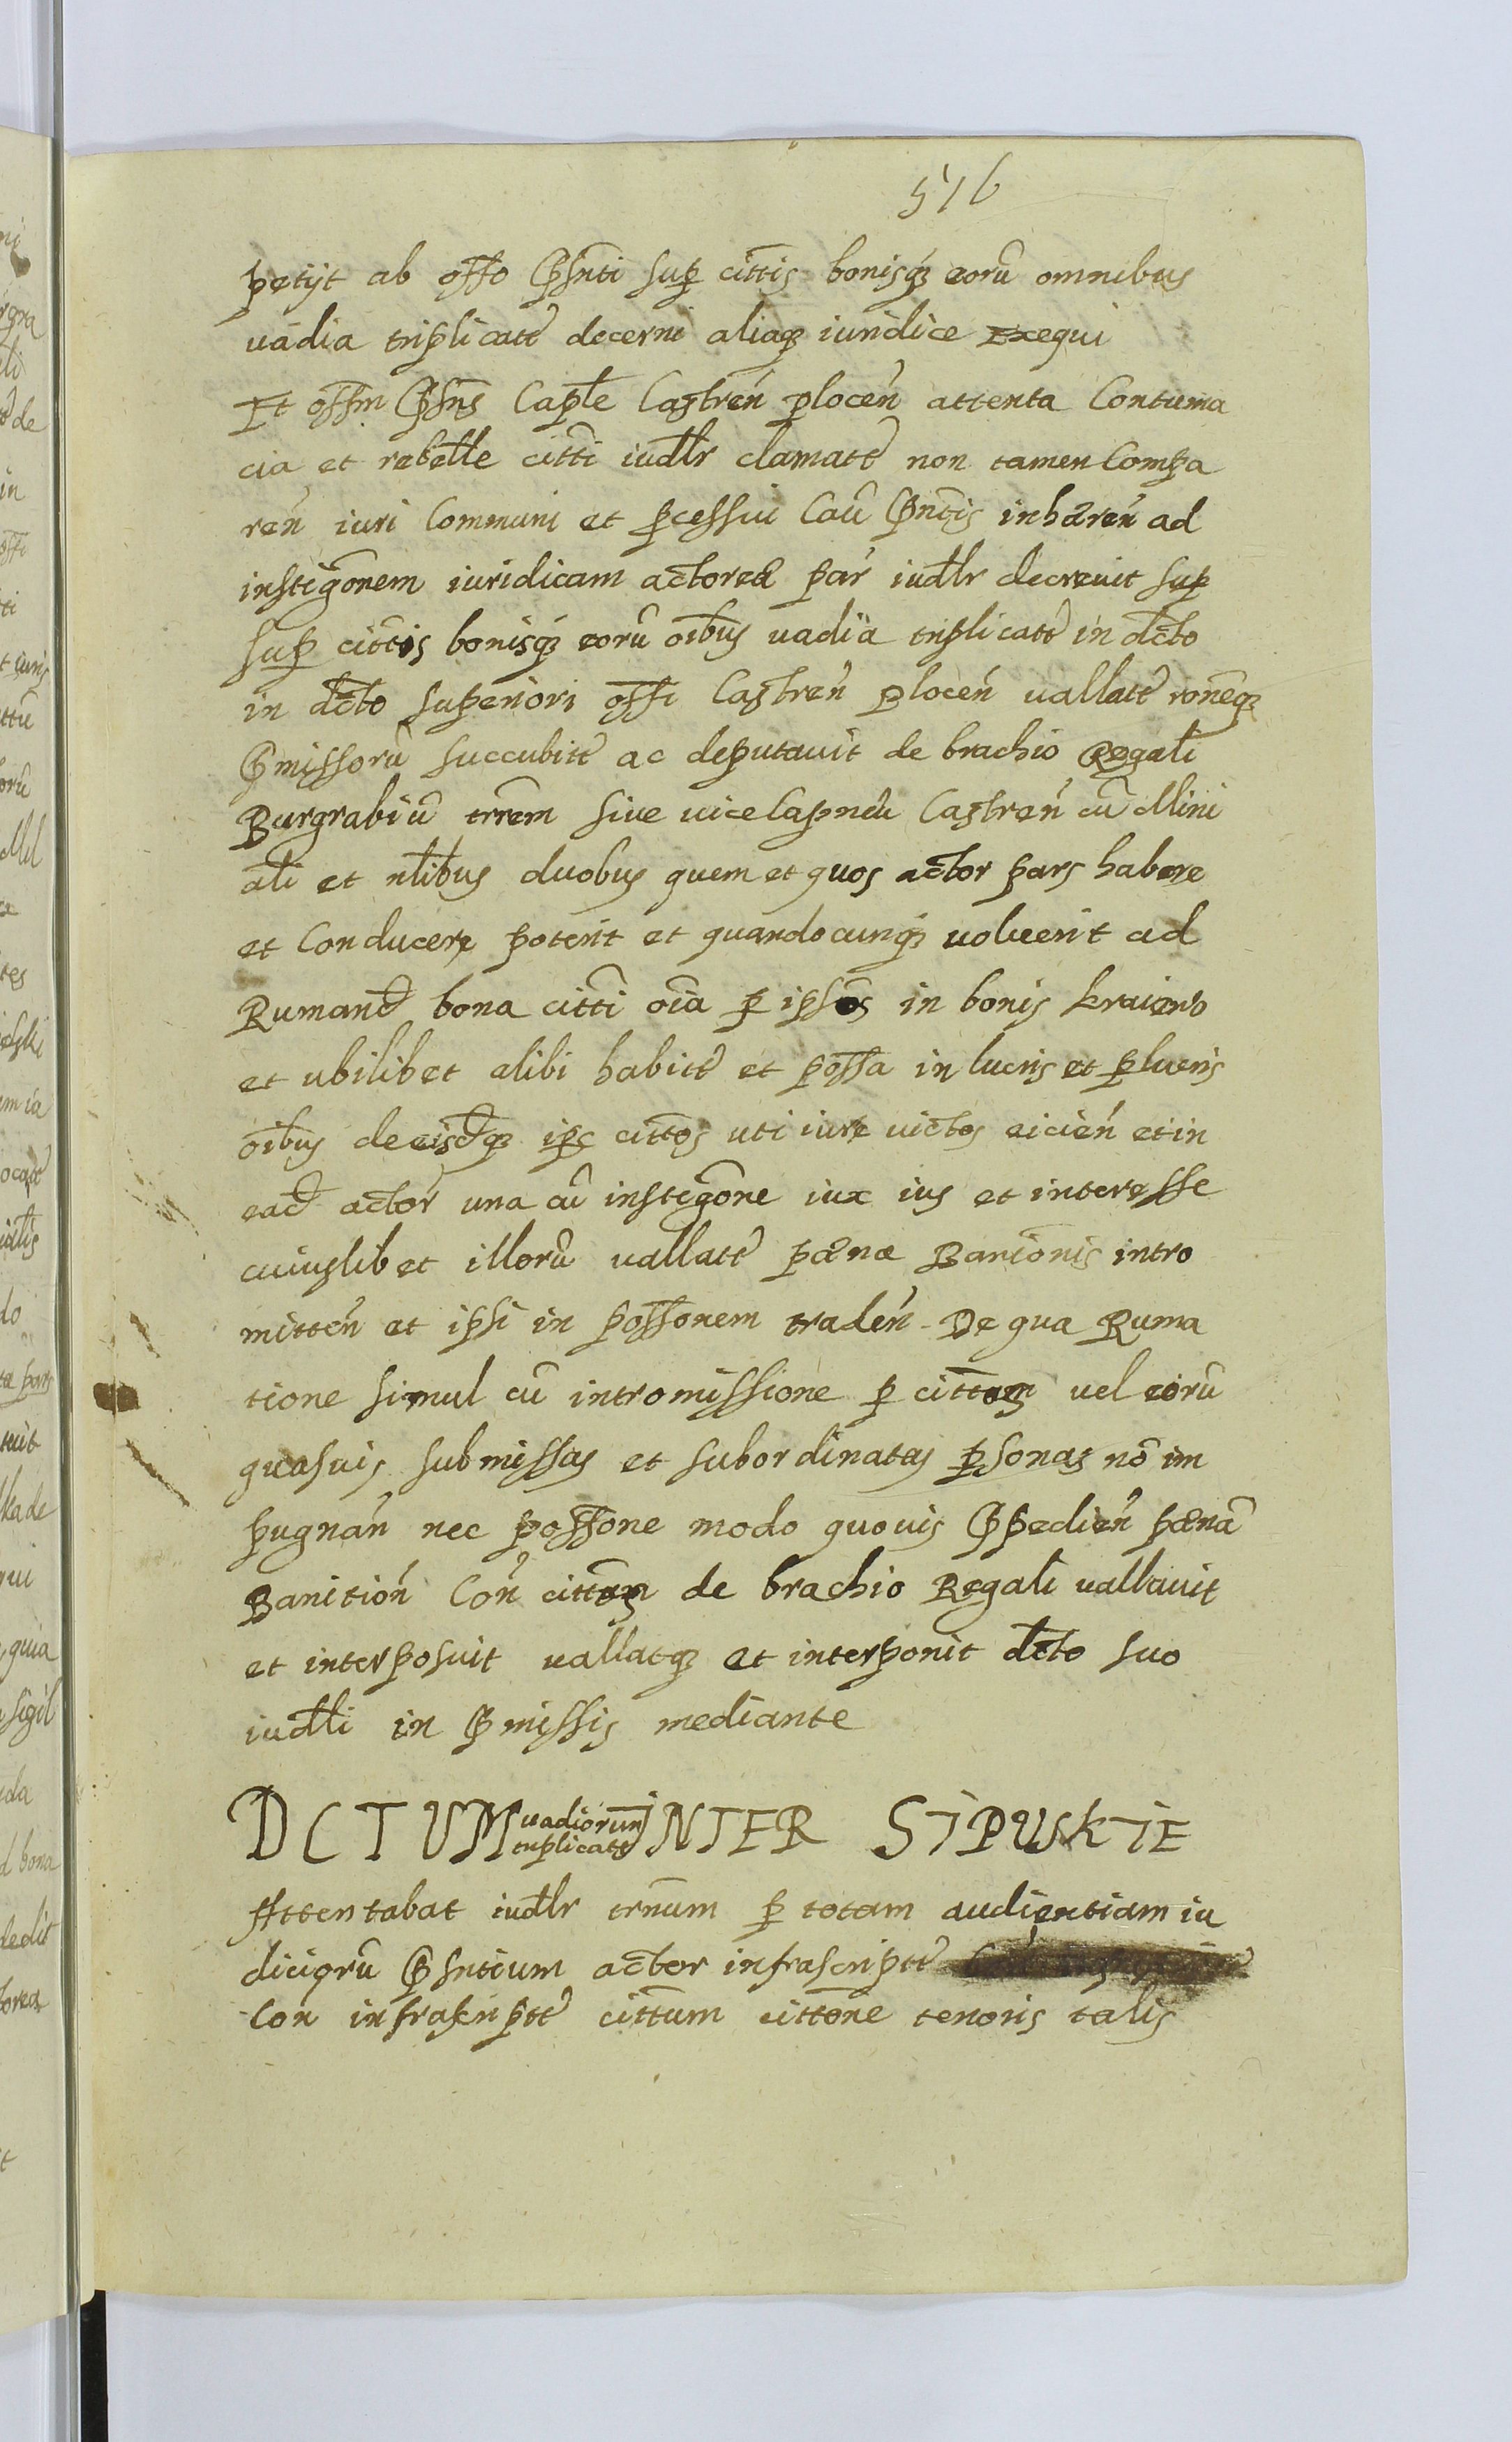 516
petijt ab offo Pħnti sup cittis bonisqz eorũ omnibus
vadia triplicatt decerni aliaqz iuridice exequi
Et offm Pħns Caple Castren plocen attenta Contuma
cia et rebelle citti iudlr clamatt non tamen Compa
ren iuri Communi et pcessui Cau Pntis inhæren ad
instigonem iuridicam actoreæ par iudlr decrevit sup
sup cittis bonisqz eorũ oibus vadia triplicatt in dcto
in dcto superiori offi Castren plocen vallatt roneqz
Pmissorũ succubitt ac deputavit de brachio Regali
Burgrabiũ trrem sive viceCapneu Castren cũ Mini
ali et nlibus duobus quem et quos actor pars habere
et Conducere poterit et quandocunqz voluerit ad
Rumand bona citti oia p ipsos in bonis kraievo
et ubilibet alibi habitt et possa in lucris et plucris
oibus de eisdqz ipc cittos uti iure victos eicien et in
ead actor una cũ instigone iux ius et interesse
cuiuslibet illorũ vallatt pænæ Banionis intro
mitten et ipsi in possonem traden. De qua Ruma
tione simul cũ intromissione p cittos vel eorũ
quasvis submissas et subordinatas psonas nõ im
pugnan nec possone modo quovis Ppedien pænã
Banition Con cittos de brachio Regali vallavit
et interposuit vallatqz et interponit dcto suo
iudli in Pmissis mediante
DCTUM vadiorum triplicatt INTER SIPUSKIE
Attentabat iudlr trnum p totam audientiam iu
diciorũ Psntium actor infrascriptt
Con infrascriptt cittum cittone tenoris talis